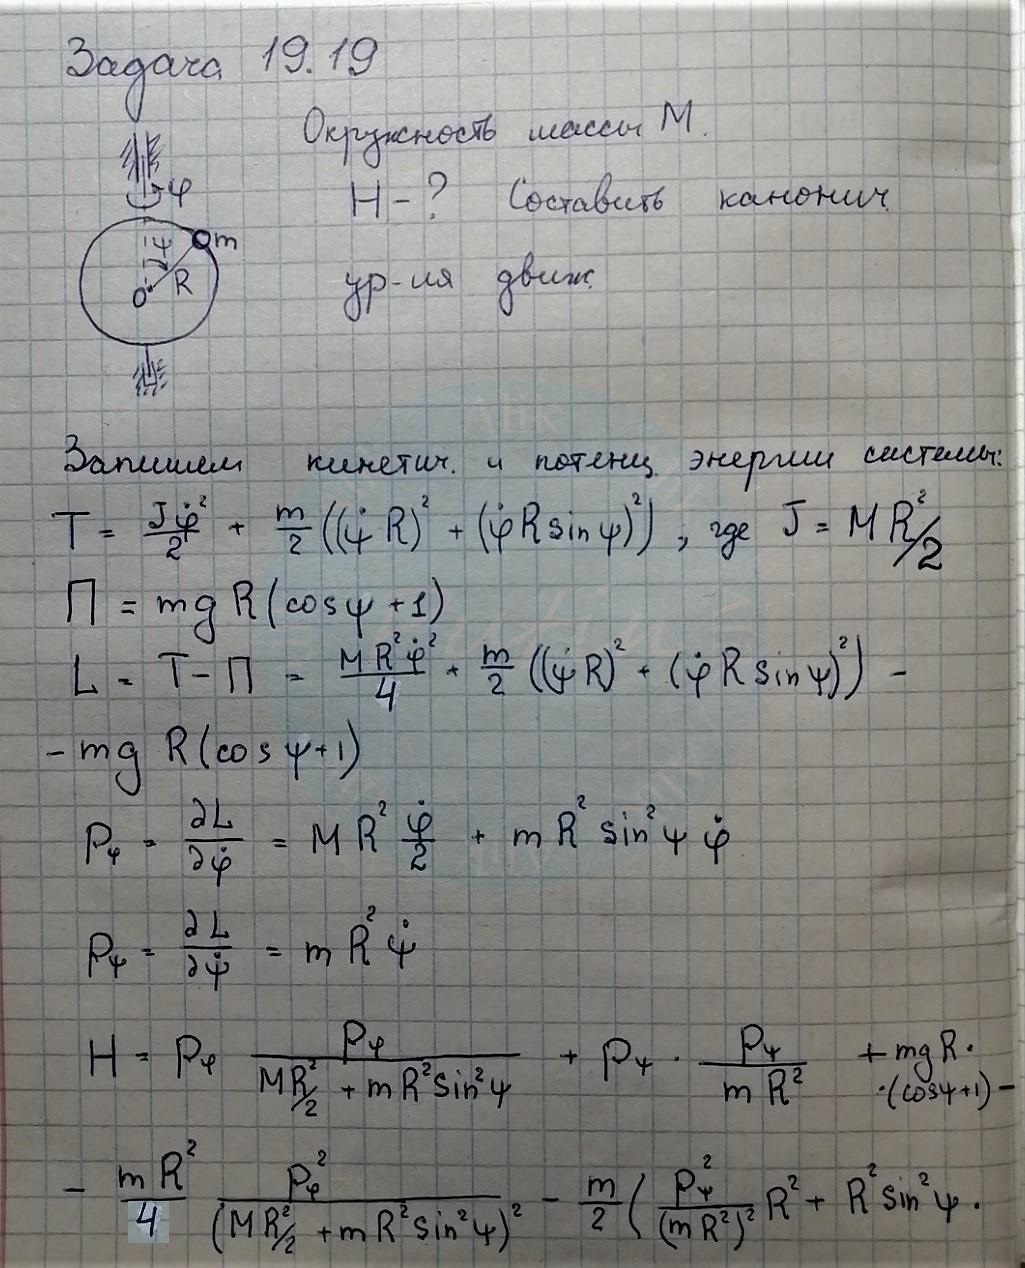 Задача 19.19
Окружность массы M.
H - ? Составить канонич.
ур-ия движ.
φ
ψ m
R
O
Запишем кинетич. и потенц. энергии системы:
T = Jφ̇²/2 + m/2 ((ψ̇ R)² + (φ̇ R sin ψ)²) , где J = MR²/2
П = mg R (cos ψ + 1)
L = T - П = MR²φ̇²/4 + m/2 ((ψ̇R)² + (φ̇ R sin ψ)²) -
- mg R (cos ψ + 1)
Pφ = ∂L/∂φ̇ = MR² φ̇/2 + mR² sin²ψ φ̇
Pψ = ∂L/∂ψ̇ = mR² ψ̇
H = Pφ Pφ/(MR²/2 + mR² sin²ψ) + Pψ · Pψ/(mR²) + mgR ·
· (cosψ + 1) -
- mR²/4 Pφ²/(MR²/2 + mR² sin²ψ)² - m/2 ( Pψ²/(mR²)² R² + R² sin²ψ ·